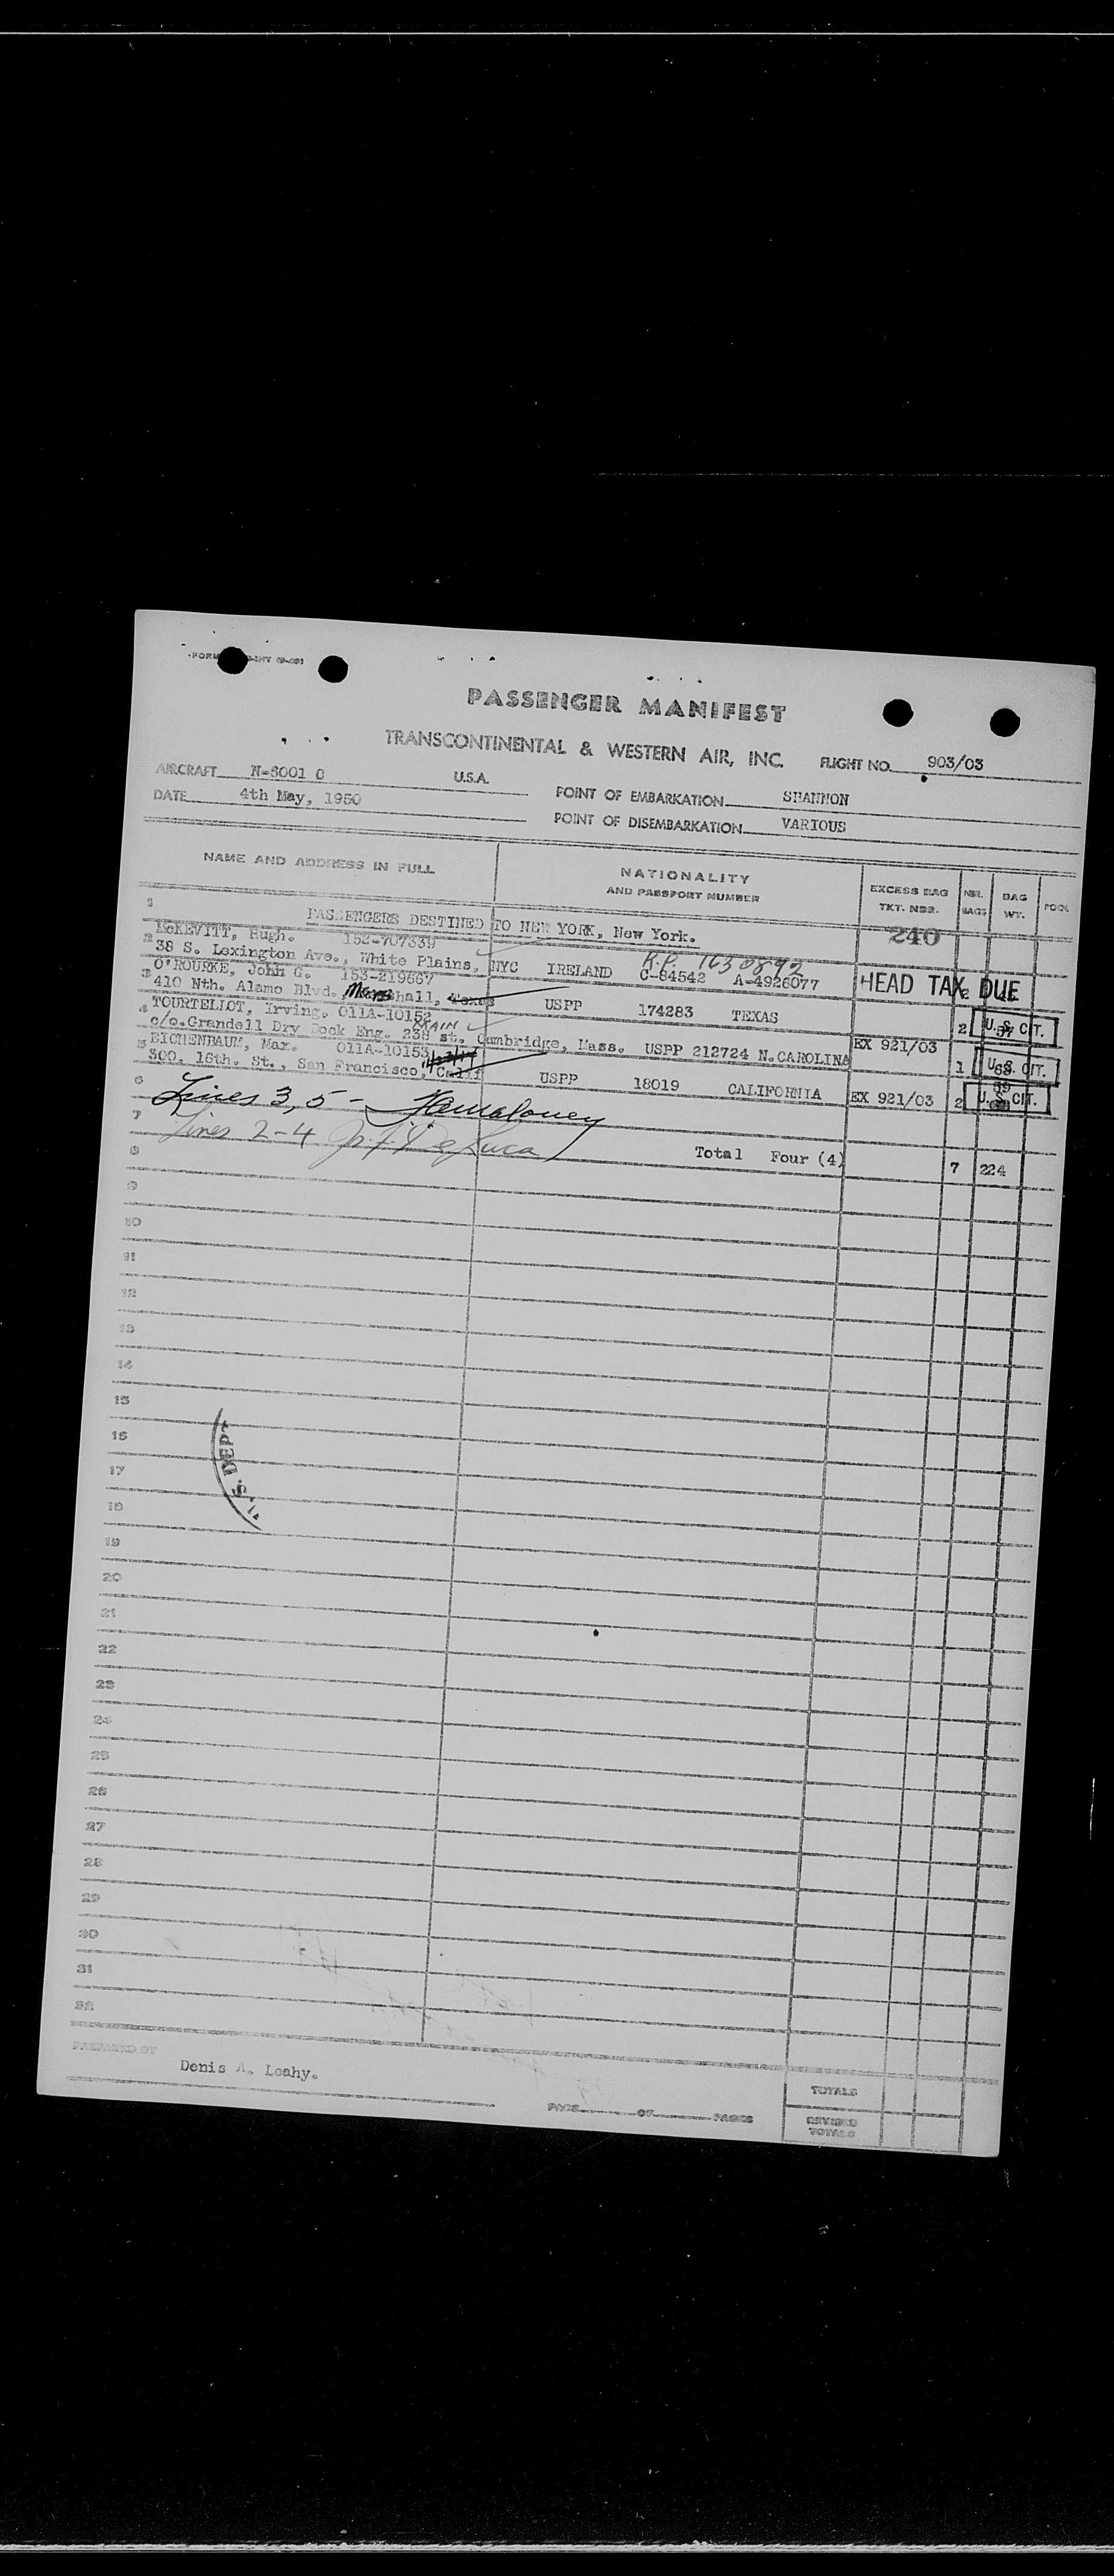 PASSENGER MANIFEST
TRANSCONTINENTAL & WESTERN AIR, INC. FLIGHT NO. 903/03
AIRCRAFT N-6001 C U.S.A.
POINT OF EMBARKATION SHANNON
DATE 4th May, 1950
POINT OF DISEMBARKATION VARIOUS
NAME AND ADDRESS IN FULL NATIONALITY AND PASSPORT NUMBER EXCESS BAG TKT. NBR. NBR. BAGS BAG WT. POOL
1 PASSENGERS DESTINED TO NEW YORK, New York. 240
McKEVITT, Hugh. 152-707339 R.P. 1630892
2 38 S. Lexington Ave., White Plains, NYC IRELAND C-84542 A-4926077 HEAD TAX DUE
O'ROURKE, John G. 153-219667
3 410 Nth. Alamo Blvd., Marshall, Texas USPP 174283 TEXAS 2 U.S. CIT.
TOURTELLOT, Irving. 011A-10152 MAIN
4 c/o.Grandell Dry Dock Eng. 238 st. Cambridge, Mass. USPP 212724 N.CAROLINA EX 921/03 1 U.S. CIT.
EICHENBAUM, Max. 011A-10153
5 300, 16th. St., San Francisco, Calif USPP 18019 CALIFORNIA EX 921/03 2 U.S. CIT.
6 Lines 3,5 -
7 Lines 2-4
8 Total Four (4) 7 224
9
10
11
12
13
14
15
16
17
18
19
20
21
22
23
24
25
26
27
28
29
30
31
32
S. DEPT
PREPARED BY Denis A. Leahy.
PAGE OF PAGES
TOTALS
REVISED TOTALS